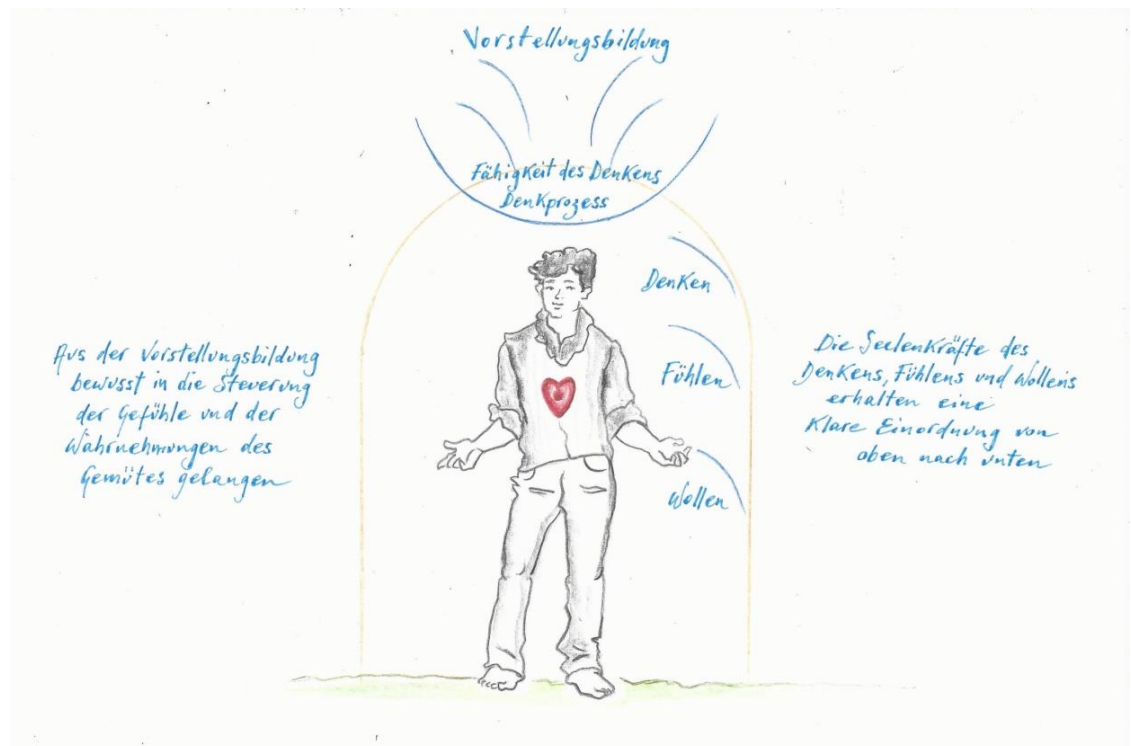 Vorstellungsbildung
Fähigkeit des Denkens
Denkprozess
Denken
Fühlen
Wollen
Aus der Vorstellungsbildung
bewusst in die Steuerung
der Gefühle und der
Wahrnehmungen des
Gemütes gelangen
Die Seelenkräfte des
Denkens, Fühlens und Wollens
erhalten eine
klare Einordnung von
oben nach unten